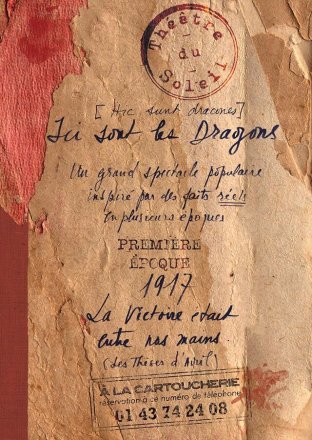 Théâtre
du
Soleil
[Hic sunt dracones]
Ici sont les Dragons
Un grand spectacle populaire
inspiré par des faits réels
en plusieurs époques
PREMIÈRE
ÉPOQUE
1917
La Victoire était
entre nos mains
(Les Thèses d'Avril)
À LA CARTOUCHERIE
réservation à ce numéro de téléphone
01 43 74 24 08